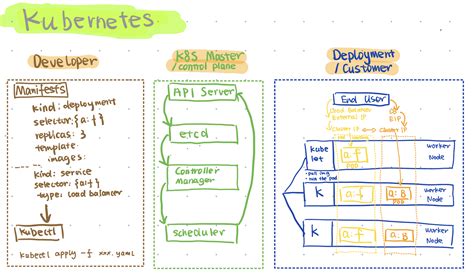 Kubernetes
Developer
Manifests
kind: deployment
selector: {a:f}
replicas: 3
template
images:
kind: service
selector: {a:f}
type: Load balancer
Kubectl
kubectl apply -f xxx.yaml
K8S Master
/control plane
API Server
etcd
Controller
Manager
scheduler
Deployment
/Customer
End User
Load Balancer
External IP
EIP
Cluster IP
Cluster IP
kube
let
a:f
worker
Node
pull img
run the pod
K
a:f
POD
a:B
POD
worker
Node
K
a:f
a:B
worker
Node